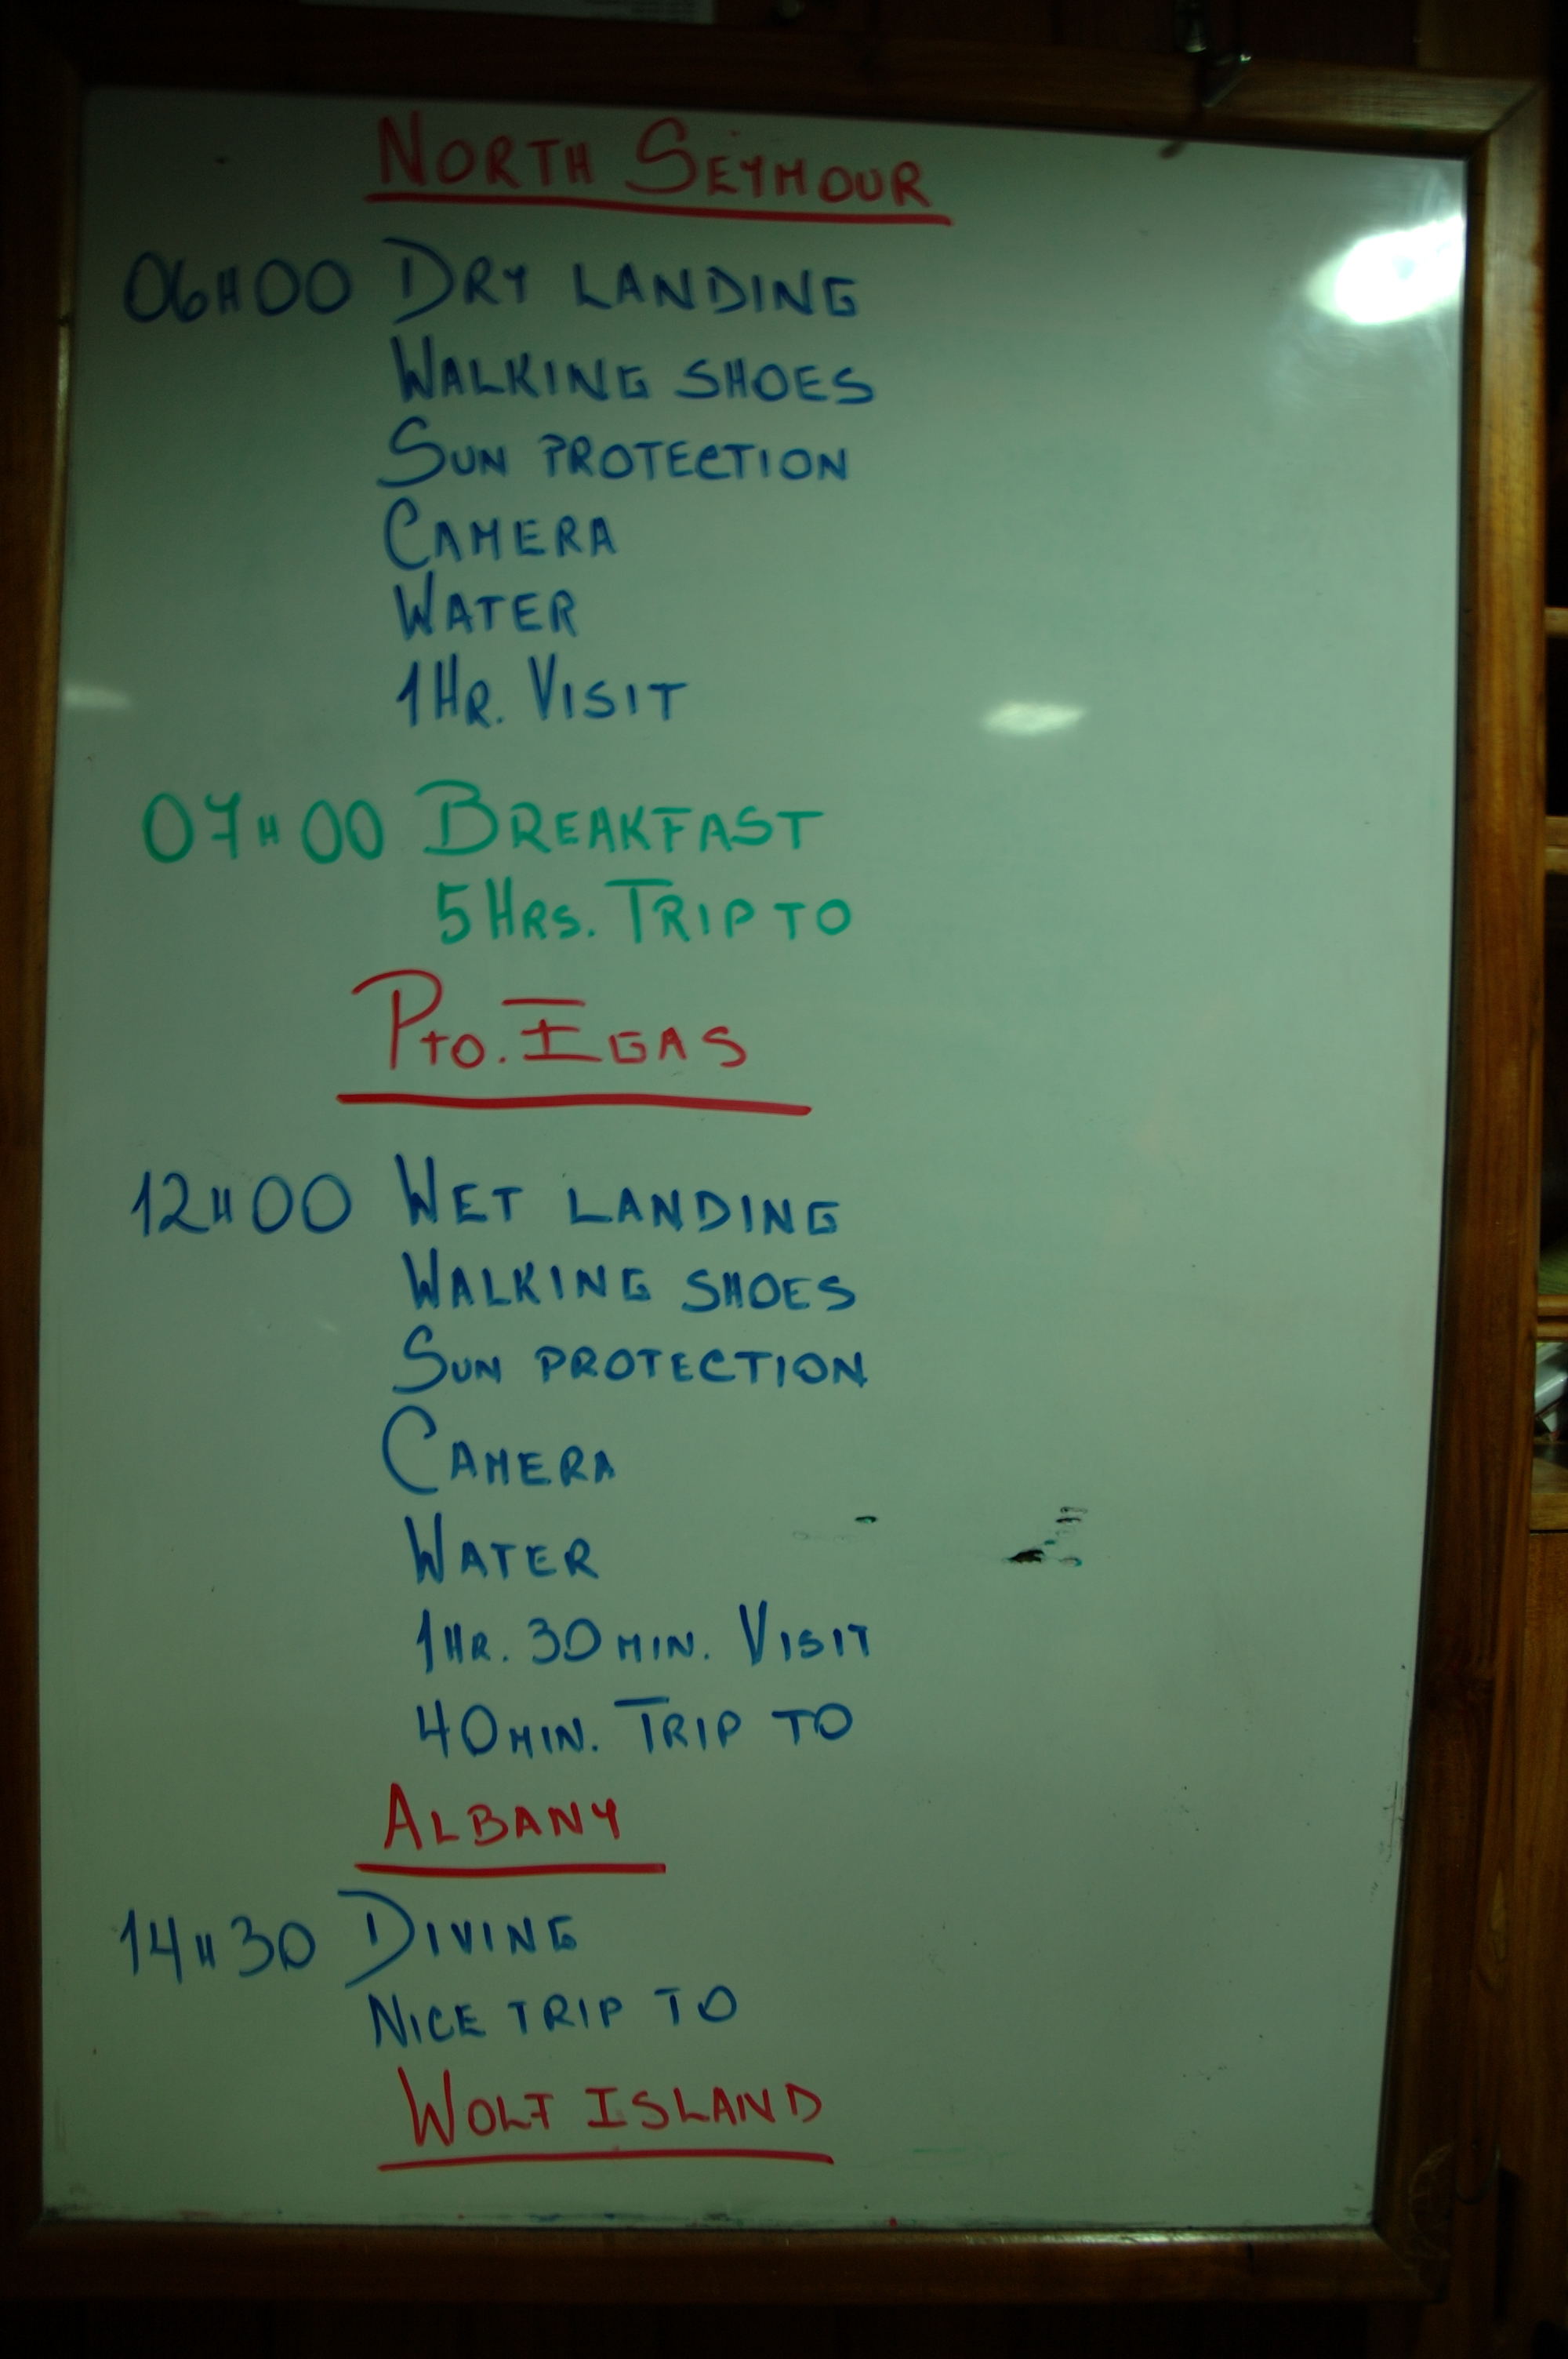 NORTH SEYMOUR
06H00 DRY LANDING
WALKING SHOES
SUN PROTECTION
CAMERA
WATER
1HR. VISIT
07H00 BREAKFAST
5HRS. TRIP TO
PTO. EGAS
12H00 WET LANDING
WALKING SHOES
SUN PROTECTION
CAMERA
WATER
1HR. 30MIN. VISIT
40MIN. TRIP TO
ALBANY
14H30 DIVING
NICE TRIP TO
WOLF ISLAND